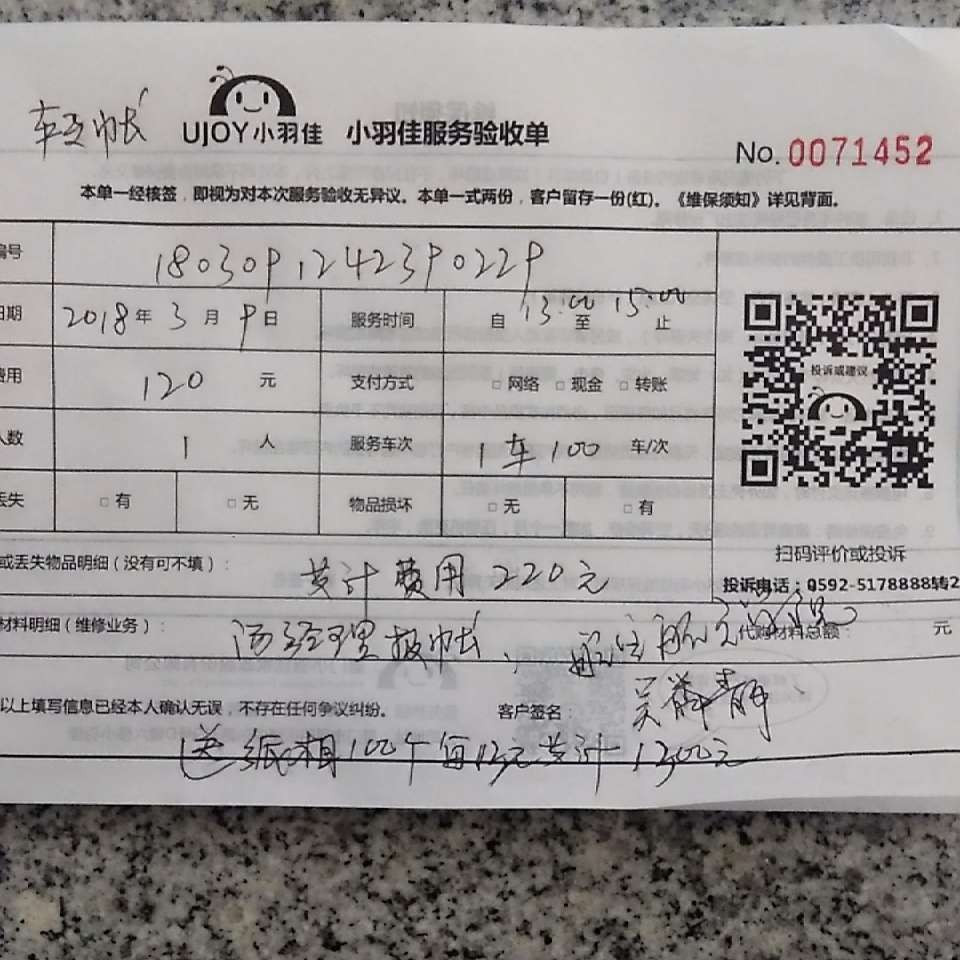 UJOY小羽佳 小羽佳服务验收单
No.0071452
本单一经核签，即视为对本次服务验收无异议。本单一式两份，客户留存一份(红)。《维保须知》详见背面。
编号 1803091242390229
日期 2018年3月9日 服务时间 自13:00至15:00止
费用 120元 支付方式 □网络 □现金 □转账
人数 1人 服务车次 1车100 车/次
丢失 □有 □无 物品损坏 □无 □有
投诉或建议
扫码评价或投诉
投诉电话：0592-5178888转2
或丢失物品明细（没有可不填）： 共计费用220元
材料明细（维修业务）： 汤经理报帐 代购材料总额： 元
以上填写信息已经本人确认无误，不存在任何争议纠纷。 客户签名：
送纸箱100个每13元共计1300元